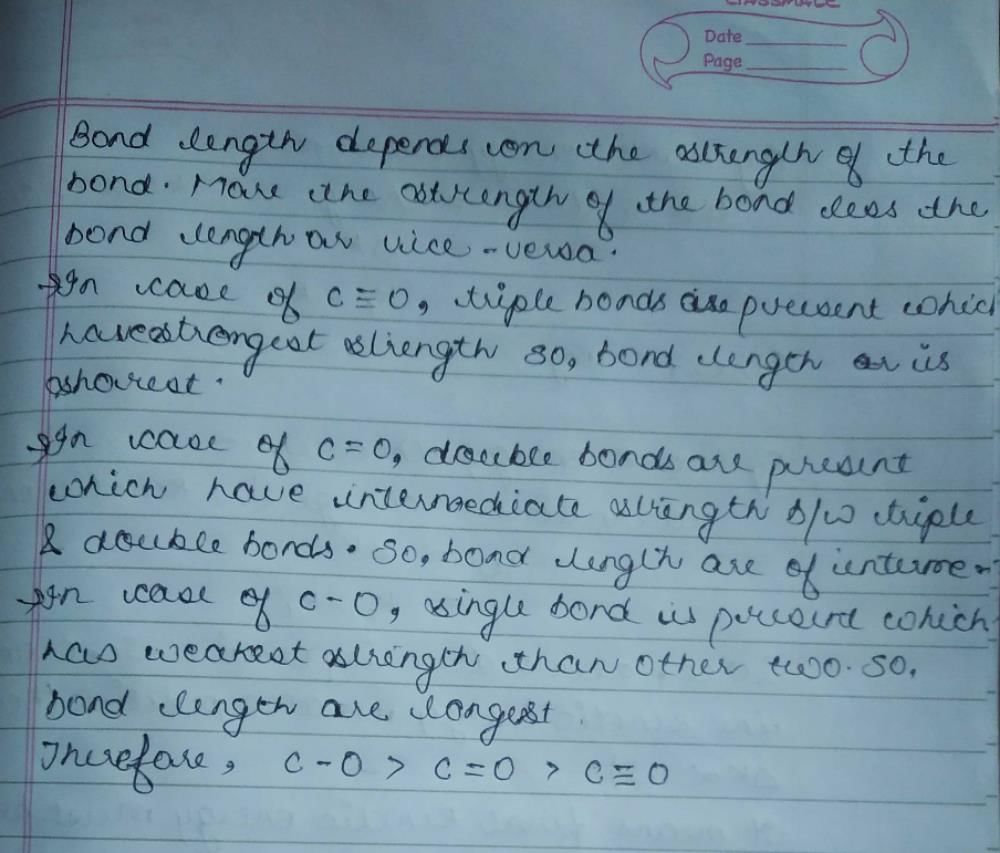 CLASSMATE
Date
Page
Bond length depends on the strength of the
bond. More the strength of the bond less the
bond length or vice-versa.
→In case of C≡O, triple bonds are present which
have strongest strength so, bond length is
shorest.
→In case of C=O, double bonds are present
which have intermediate strength b/w triple
& double bonds. So, bond length are of interme-
→In case of C-O, single bond is present which
has weakest strength than other two. So,
bond length are longest.
Therefore, C-O > C=O > C≡O